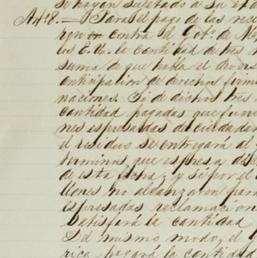 se hayan sujetado a su exa
Art. 8.- Para el pago de las recl
contra el Gob.º de Mé
los E.U. la cantidad de tres m
suma de que habla el
anticipacion de derechos
naciones. Si de dichos tres
cantidad pagadas que fueren
nes espresadas de ciudadan
el residuo se entregará al
terminos que espresa
de esta fecha; y si por el
llones no alcanzaren para
espresadas reclamacion
satisfará la cantidad
Del mismo modo, el
rica pagará la cantidad